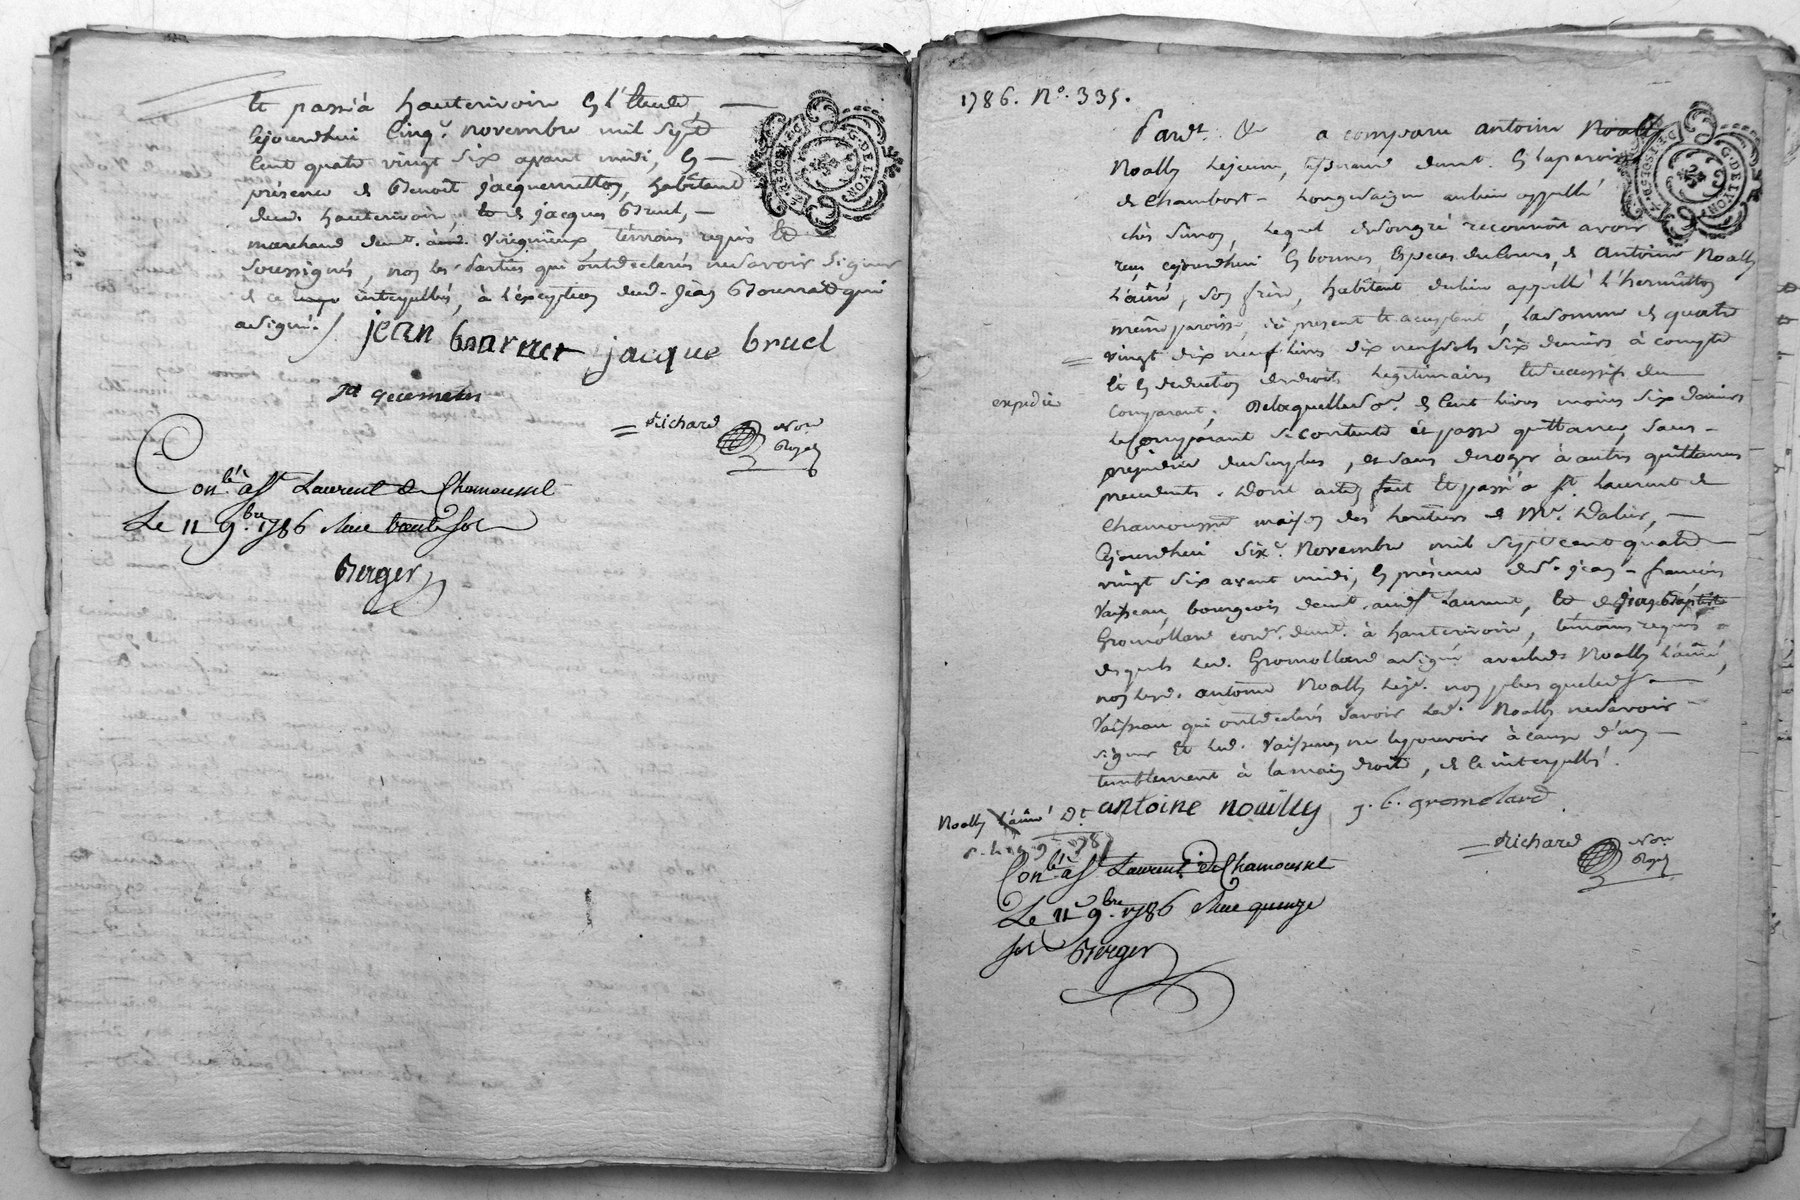 et passé à hauterivoire En l'Etude
Cejourdhui Cinq.e novembre mil Sept
Cent quatre vingt Six avant midi, En
présence de Benoit Jacquemetton, habitant
dud. hauterivoire, et de Jacques Bruel,
marchand demt. aud. Virigneux, témoins requis et
Soussignés, non les Parties qui ont déclarés ne Savoir Signer
de ce interpellés, à l'éxception dud. Jean Bournat qui
a Signé.
jean bournat jacque bruel
Richard Nore
Royal
Conlé à St Laurent de Chamousset
Le 11 9.bre 1786 Reçu trente Sols
Berger
G. DE LYON
1786. No. 335.
Pardt. &c a comparu antoine Noally
Noally Lejeune, demt. En la paroisse
de Chambost Longessaigne au lieu appellé
chés Simon, Lequel de Son gré reconnoit avoir
reçu cejourdhui En bonnes Espèces du Cours, de Antoine Noally
L'aîné, Son frère, habitant du lieu appellé L'hermitton
même paroisse, ici présent et acceptant, la Somme de quatre
vingt dix neuf livres dix neuf sols Six deniers à compte
Et En déduction des droits Légitimaires et Successifs du
expédié
Comparant; De laquelle So.e de Cent livres moins Six deniers
Le Comparant Se contente et passe quittance, Sans
préjudice du Surplus, et Sans déroger à autres quittances
précédentes. Dont acte, fait Et passé à St. Laurent de
Chamousset maison des héritiers de Mr. Dalier,
Cejourdhui Six.e Novembre mil Sept cent quatre
vingt Six avant midi, En présence de Sr. Jean françois
Vaisseau, bourgeois demt. aud. St Laurent, et de Jean Baptiste
Gromollard cord.r demt. à hauterivoire, témoins requis
desquels Led. Gromollard a Signé avec led. Noally L'aîné,
non Led. antoine Noally Leje. non plus que led. Sr
Vaisseau qui ont déclarés Savoir Led. Noally ne Savoir
Signer Et Led. Vaisseau ne le pouvoir à cause d'un
tremblement à la main droite, de Ce interpellés.
Noally L'aîné Dt antoine nouilly j. b. gromolard
Richard Nore
Royal
Conlé à St Laurent de Chamousset
Le 11 9.bre 1786 Reçu quinze
Sols Berger
G. DE LYON